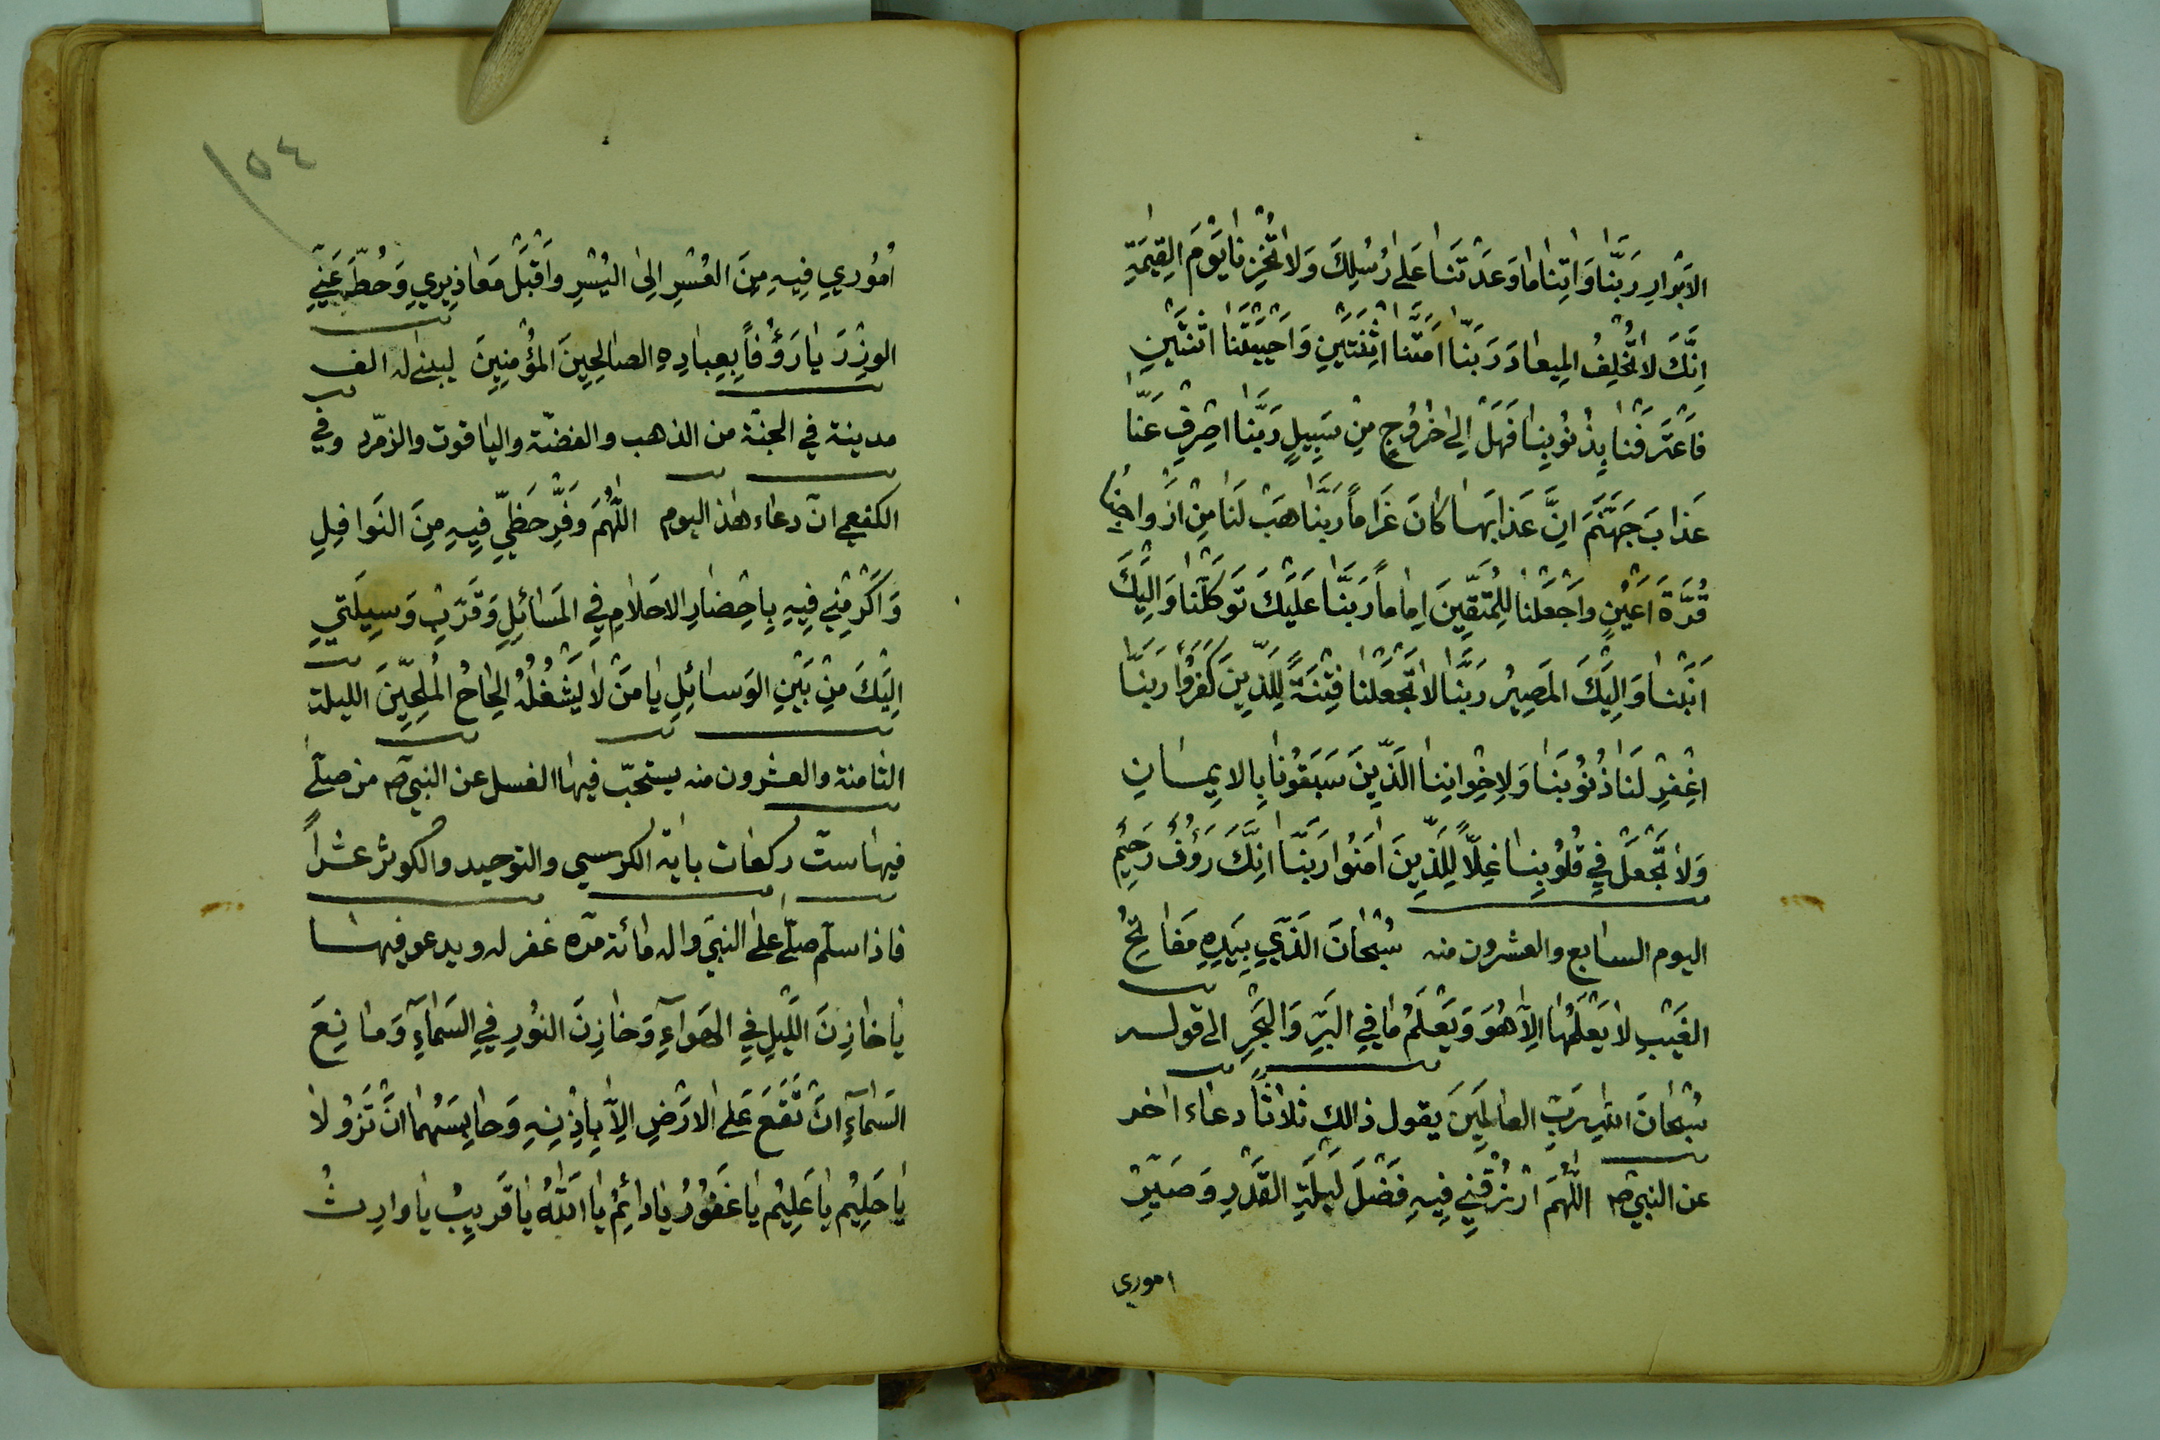 الاَبْرارِ رَبَّنا وَاتِنا ما وَعَدْتَنا عَلى رُسُلِكَ وَلا تُخْزِنا يَوْمَ القِيمَةِ
اِنَّكَ لا تُخْلِفُ المِيعادَ رَبَّنا اَمَتَّنا اثْنَتَيْنِ وَاَحْيَيْتَنَا اثْنَتَيْنِ
فَاعْتَرَفْنا بِذُنُوبِنا فَهَلْ اِلى خُرُوجٍ مِنْ سَبِيلٍ رَبَّنَا اصْرِفْ عَنّا
عَذابَ جَهَنَّمَ اِنَّ عَذابَها كانَ غَراماً رَبَّنا هَبْ لَنا مِنْ اَزْواجِنا
قُرَّةَ اَعْيُنٍ وَاجْعَلْنا لِلْمُتَّقِينَ اِماماً رَبَّنا عَلَيْكَ تَوَكَّلْنا وَاِلَيْكَ
اَنَبْنا وَاِلَيْكَ المَصِيرُ رَبَّنا لا تَجْعَلْنا فِتْنَةً لِلَّذِينَ كَفَرُوا رَبَّنَا
اغْفِرْ لَنا ذُنُوبَنا وَلاِخْوانِنا الَّذِينَ سَبَقُونا بِالاِيمانِ
وَلا تَجْعَلْ فِي قُلُوبِنا غِلّاً لِلَّذِينَ امَنُوا رَبَّنا اِنَّكَ رَؤُفٌ رَحِيمٌ
اليوم السابع والعشرون منه سُبْحانَ الَّذِي بِيَدِهِ مَفاتِحُ
الغَيْبِ لا يَعْلَمُها اِلاّ هُوَ وَيَعْلَمُ ما فِي البَرِّ وَالبَحْرِ الى قوله
سُبْحانَ اللهِ رَبِّ العالَمِينَ يقول ذالك ثلاثاً دعاء اخر
عن النبيّ ص اللّهُمَّ ارْزُقْنِي فِيهِ فَضْلَ لَيْلَةِ القَدْرِ وَصَيِّرْ
اموري
١٥٤
اُمُورِي فِيهِ مِنَ العُسْرِ اِلىَ اليُسْرِ وَاقْبَلْ مَعاذِيرِي وَحُطَّ عَنِّي
الوِزْرَ يا رَؤُفاً بِعِبادِهِ الصالِحِينَ المُؤْمِنِينَ ليبنى له الف
مدينة في الجنّة من الذهب والفضّة والياقوت والزمّرد وفي
الكفعمي انّ دعاء هذا اليوم اللّهُمَّ وَفِّرْ حَظِّي فِيهِ مِنَ النَوافِلِ
وَاَكْرِمْنِي فِيهِ بِاِحْضارِ الاَحْلامِ فِي المَسائِلِ وَقَرِّبْ وَسِيلَتِي
اِلَيْكَ مِنْ بَيْنِ الوَسائِلِ يا مَنْ لا يَشْغَلُهُ اِلْحاحُ المُلِحِّينَ الليلة
الثامنة والعشرون منه يستحبّ فيها الغسل عن النبيّ ص من صلّى
فيها ستّ ركعات باية الكرسي والتوحيد والكوثر عشراً
فاذا سلّم صلّى على النبيّ واله مائة مرّة غفر له ويدعو فيها
يا خازِنَ اللَّيْلِ فِي الهَواءِ وَخازِنَ النُورِ فِي السَماءِ وَمانِعَ
السَماءِ اَنْ تَقَعَ عَلَى الاَرْضِ اِلاّ بِاِذْنِهِ وَحابِسَهُما اَنْ تَزُولا
يا حَلِيمُ يا عَلِيمُ يا غَفُورُ يا دائِمُ يا اَللهُ يا قَرِيبُ يا وارِثُ